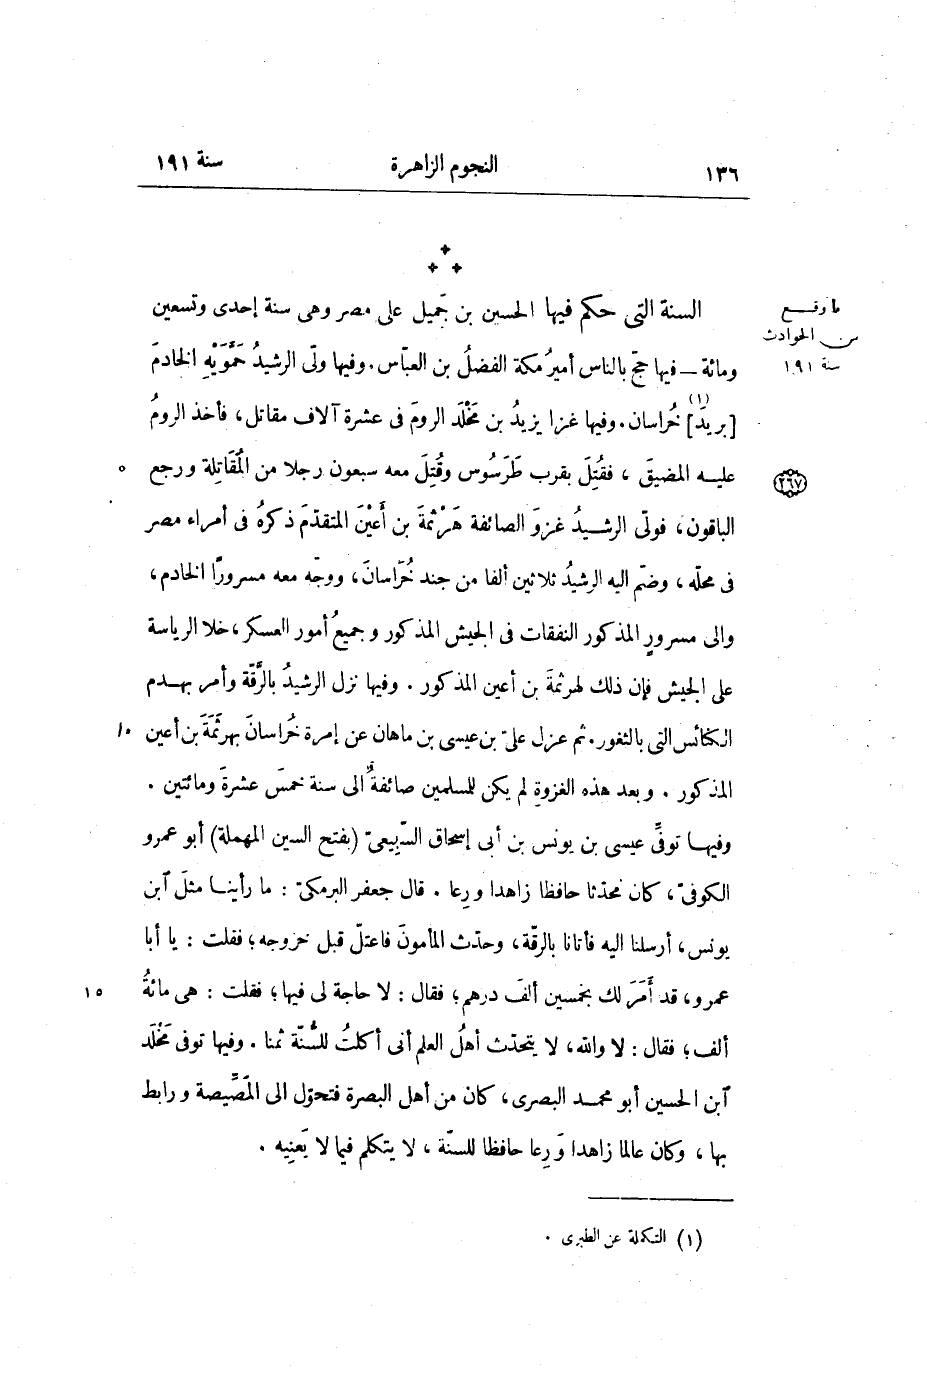 ١٣٦ النجوم الزاهرة سنة ١٩١
السنة التى حكم فيها الحسين بن جَميل على مصر وهى سنة إحدى وتسعين
ما وقع
من الحوادث
سنة ١٩١
ومائة ــ فيها حجّ بالناس أميرُ مكة الفضلُ بن العبّاس. وفيها ولّى الرشيدُ حَمَّوَيْهِ الخادمَ
[بريدَ](١) خُراسان. وفيها غزا يزيدُ بن مَخْلَد الرومَ فى عشرة آلاف مقاتل، فأخذ الرومُ
عليــه المضيقَ، فقُتِلَ بقرب طَرَسُوس وقُتِلَ معه سبعون رجلا من المُقَاتِلة ورجع ٥
٢٦٧
الباقون، فولّى الرشــيدُ غزوَ الصائفة هَرْثمةَ بن أَعْيَنَ المتقدّمَ ذكرهُ فى أمراء مصر
فى محلّه، وضمّ اليه الرشيدُ ثلاثين ألفا من جند خُرَاسانَ، ووجّه معه مسرورًا الخادم،
والى مسرورٍ المذكور النفقات فى الجيش المذكور وجميعُ أمور العسكر، خلا الرياسة
على الجيش فإن ذلك لهرثمةَ بن أعين المذكور. وفيها نزل الرشيدُ بالرَّقّة وأمر بهــدم
الكنائس التى بالثغور. ثم عزل علىّ بن عيسى بن ماهان عن إمرة خُراسانَ بهرثَمَةَ بن أعين ١٠
المذكور. وبعد هذه الغزوةِ لم يكن للمسلمين صائفةٌ الى سنة خمسَ عشرةَ ومائتين.
وفيهــا توفِّى عيسى بن يونس بن أبى إسحاق السَّبِيعىّ (بفتح السين المهملة) أبو عمرو
الكوفىّ، كان محدّثا حافظا زاهدا ورِعا. قال جعفر البرمكىّ: ما رأينــا مثلَ ٱبن
يونس، أرسلنا اليه فأتانا بالرقّة، وحدّث المأمونَ فاعتلّ قبل خروجه؛ فقلت: يا أبا
عمرو، قد أَمَرَ لك بخمسين ألفَ درهم؛ فقال: لا حاجة لى فيها؛ فقلت: هى مائةُ ١٥
ألف؛ فقال: لا والله، لا يتحدّث أهلُ العلم أنى أكلتُ للسُّنّة ثمنا. وفيها توفى مَخْلَد
ٱبن الحسين أبو محمــد البصرى، كان من أهل البصرة فتحوّل الى المَصِّيصة ورابط
بها، وكان عالما زاهدا وَرِعا حافظا للسنّة، لا يتكلم فيما لا يَعنِيه.
(١) التكملة عن الطبرى.